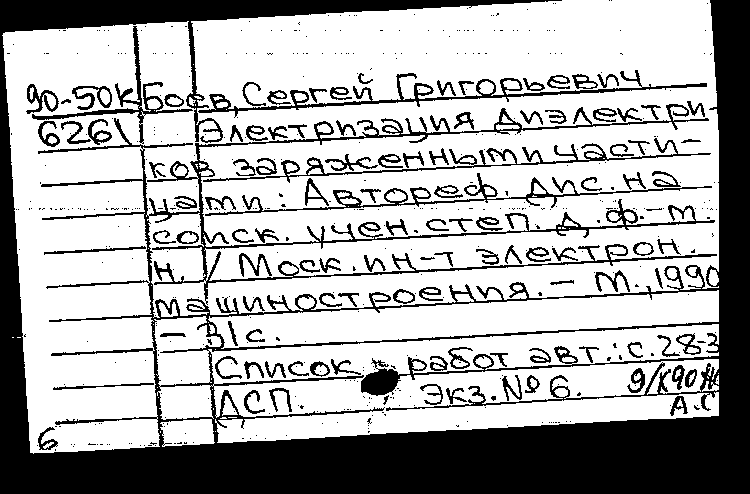 90-50к Боев, Сергей Григорьевич.
6261 Электризация диэлектри-
ков заряженными части-
цами: Автореф. дис. на
соиск. учен. степ. д. ф.-м.
н. / Моск. ин-т электрон.
машиностроения. — М., 1990
— 31с.
Список работ авт.: с. 28-3
ДСП. Экз. № 6.
А.С
6